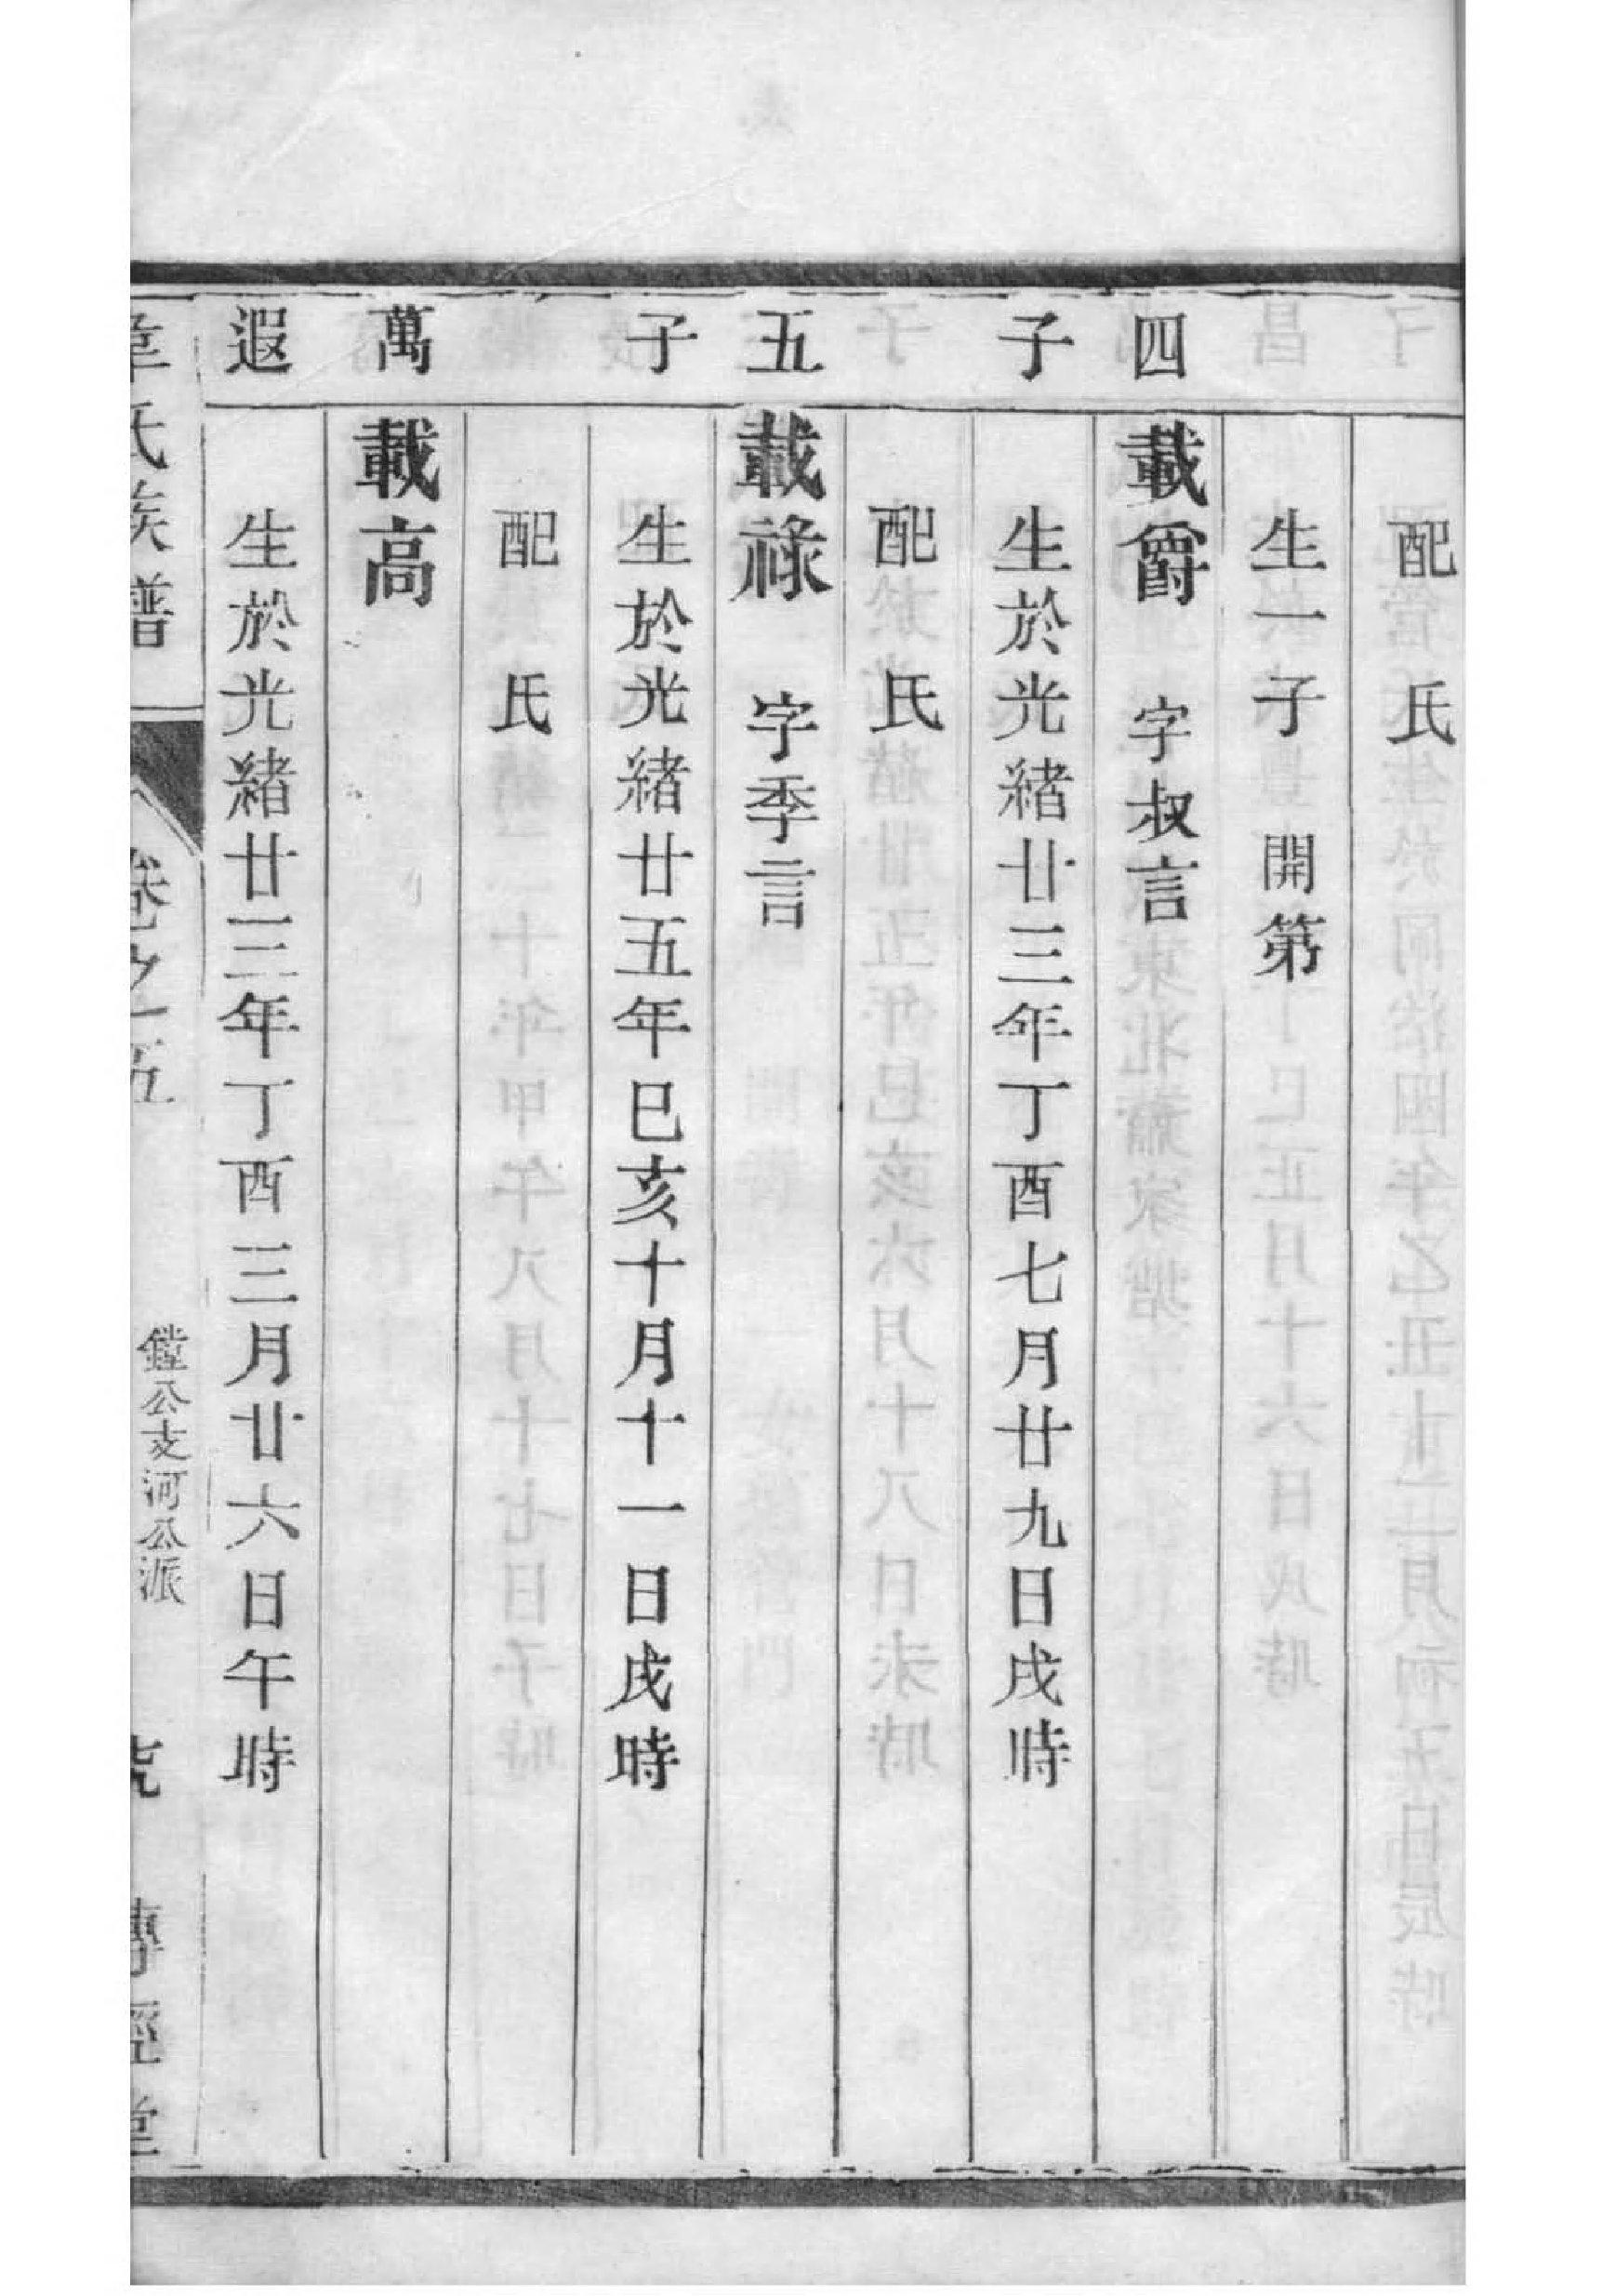 配　氏
生一子　開第
四子
載爵　字叔言
生於光緒廿三年丁酉七月廿九日戌時
配　氏
五子
載祿　字季言
生於光緒廿五年巳亥十月十一日戌時
配　氏
萬遐
載高
生於光緒廿三年丁酉三月廿六日午時
章氏族譜
卷之五
鏜公支河公派
傳經堂